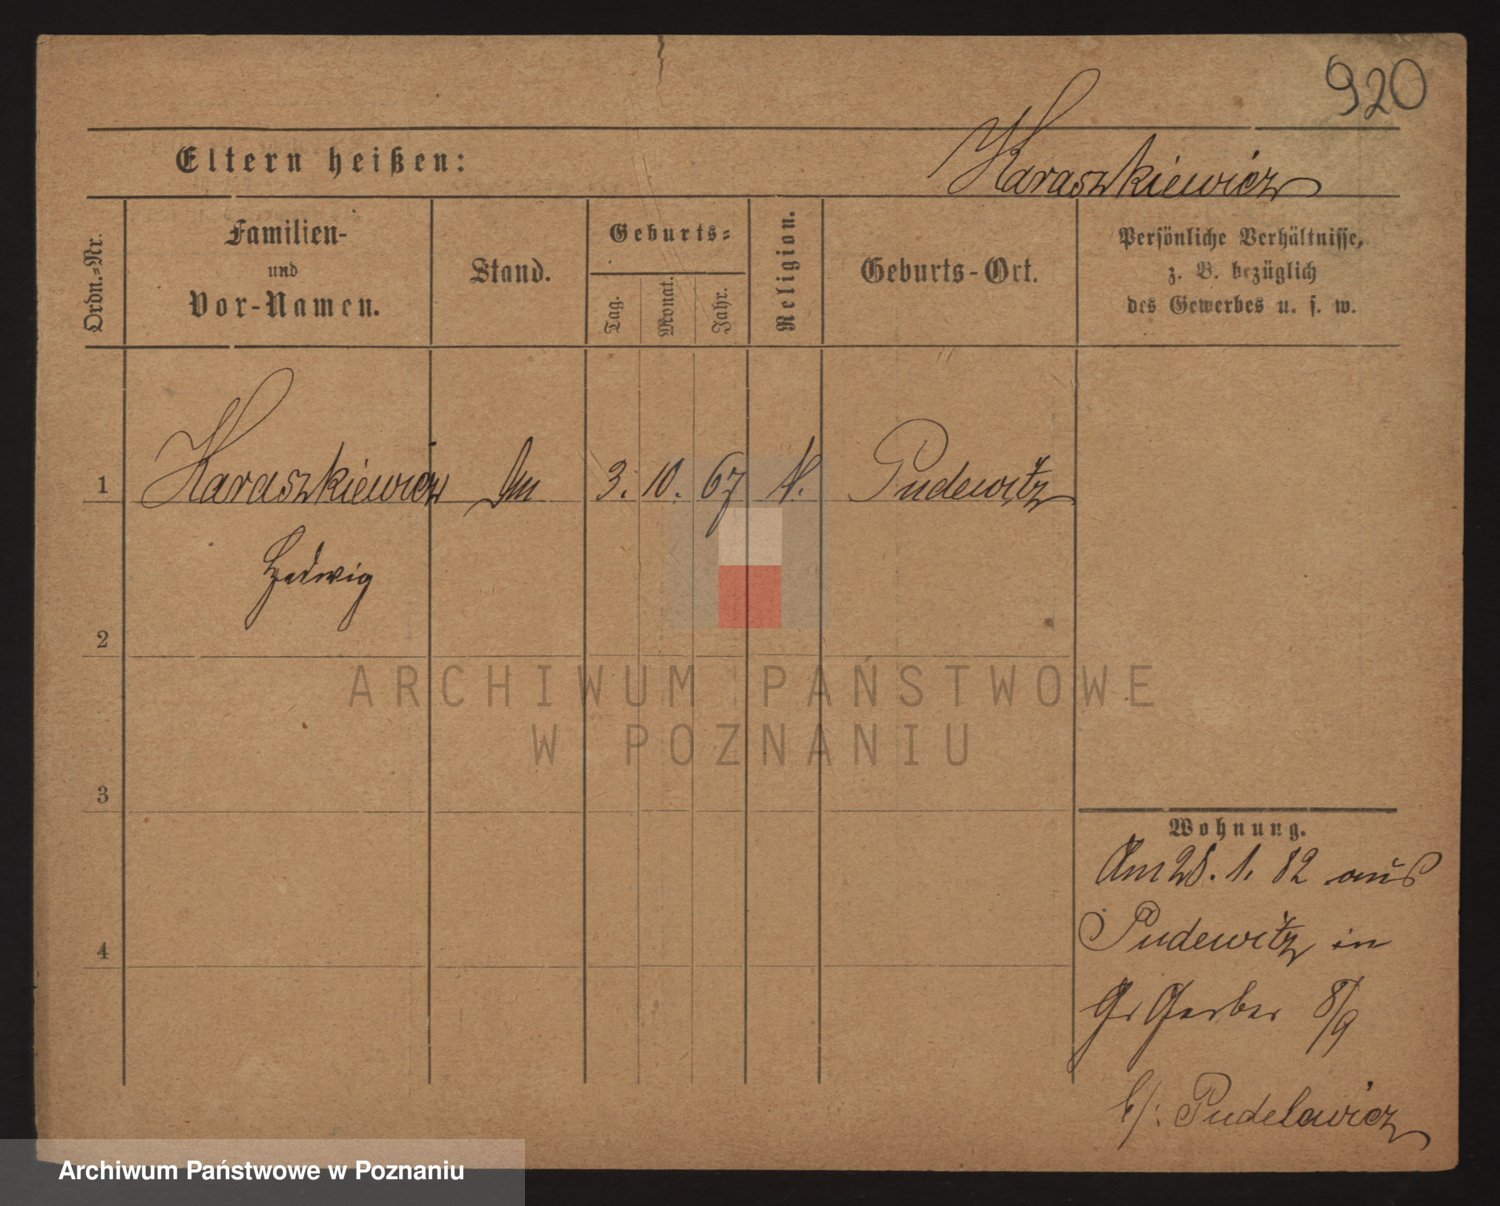 920
Eltern heißen: Haraszkiewicz
Ordn.-Nr.
Familien-
und
Vor-Namen.
Stand.
Geburts-
Tag.
Monat.
Jahr.
Religion.
Geburts-Ort.
Persönliche Verhältnisse,
z. B. bezüglich
des Gewerbes u. s. w.
1 Haraszkiewicz 3. 10. 67 Pudewitz
Hedwig
2
3
4
Wohnung.
Am 28. 1. 82 aus
Pudewitz in
Gr Gerber 8/9
b/: Pudelewicz
ARCHIWUM PAŃSTWOWE
W POZNANIU
Archiwum Państwowe w Poznaniu